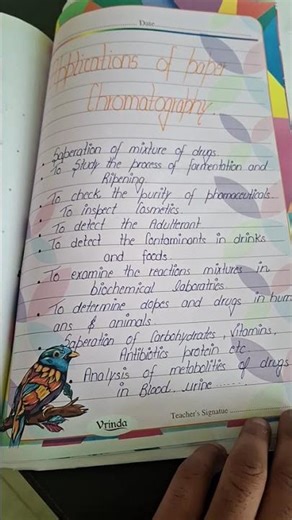 Date
Applications of paper
Chromatography
Saperation of mixture of drugs
To Study the process of formentation and
Ripening
To check the purity of phamaceuticals
To inspect Cosmetics
To detect the Adulterant
To detect the Contaminants in drinks
and foods
To examine the reactions mixtures in
biochemical laboratries
To determine dopes and drugs in hum
ans & animals
Saberation of Carbohydrates, vitamins,
Antibiotics protein etc
Analysis of metabolities of drugs
in Blood, urine ........
Vrinda
Teacher's Signatue